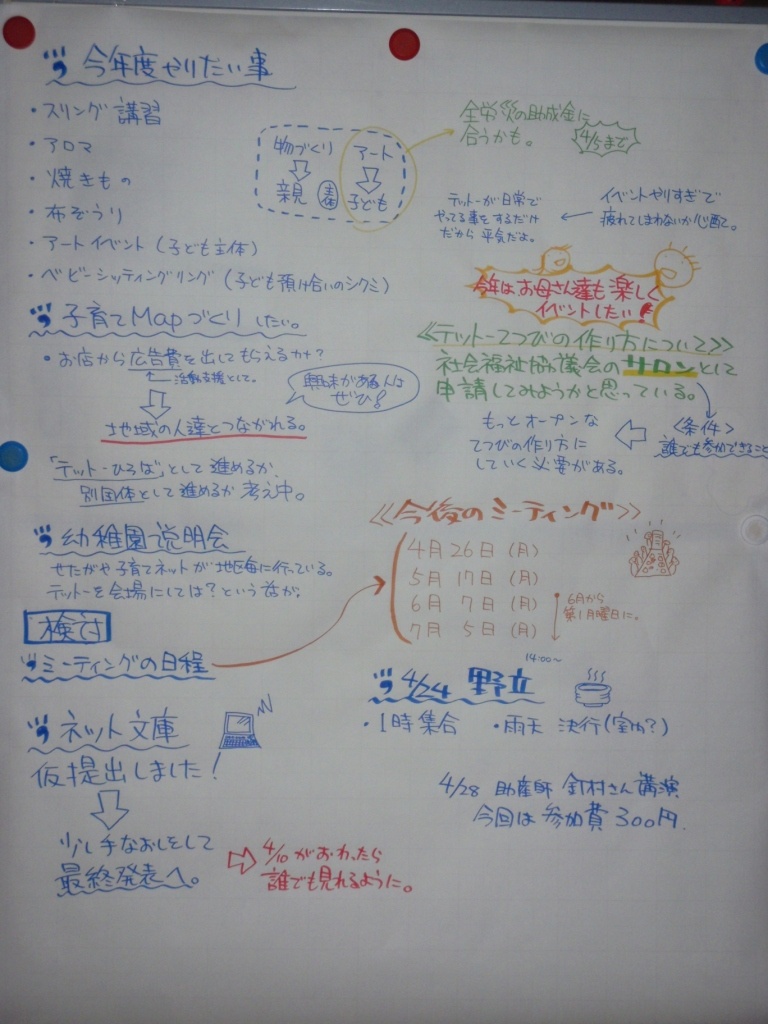 今年度やりたい事
・スリング講習
・アロマ
・焼きもの
・布ぞうり
・アートイベント(子ども主体)
・ベビーシッティングリング(子ども預け合いのシクミ)
物づくり
親
アート
子ども
全労災の助成金に
合うかも。
4/5まで
イベントやりすぎで
疲れてしまわないか心配て。
テットーが日常で
やってる事をするだけ
だから平気だよ。
今年はお母さん達も楽しく
イベントしたい!
子育てMapづくりしたい。
・お店から広告費を出してもらえるカナ?
活動支援として。
興味がある人は
ぜひ!
地域の人達とつながれる。
「テットーひろば」として進めるか、
別団体として進めるか考え中。
≪テットーてつびの作り方について≫
社会福祉協議会のサロンとして
申請してみようかと思っている。
<条件>
誰でも参加できること
もっとオープンな
てつびの作り方に
していく必要がある。
幼稚園説明会
せたがや子育てネットが地区毎に行っている。
テットーを会場にしては?という話が。
検討
ミーティングの日程
≪今後のミーティング≫
4月26日(月)
5月17日(月)
6月 7日(月)
7月 5日(月)
6月から
第1月曜日に。
ネット文庫
仮提出しました!
少し手なおしをして
最終発表へ。
4/10がおわったら
誰でも見れるように。
14:00〜
4/24 野立
・1時集合 ・雨天 決行(室内?)
4/28 助産師 釘村さん講演
今回は参加費300円.